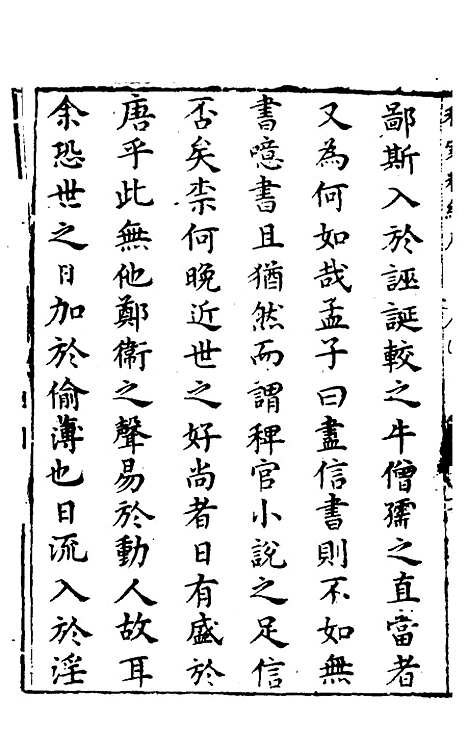 鄙斯入於誣誕較之牛僧孺之直當者
又為何如哉孟子曰盡信書則不如無
書噫書且猶然而謂稗官小說之足信
否矣柰何晚近世之好尚者日有盛於
唐乎此無他鄭衞之聲易於動人故耳
余恐世之日加於偷薄也日流入於淫